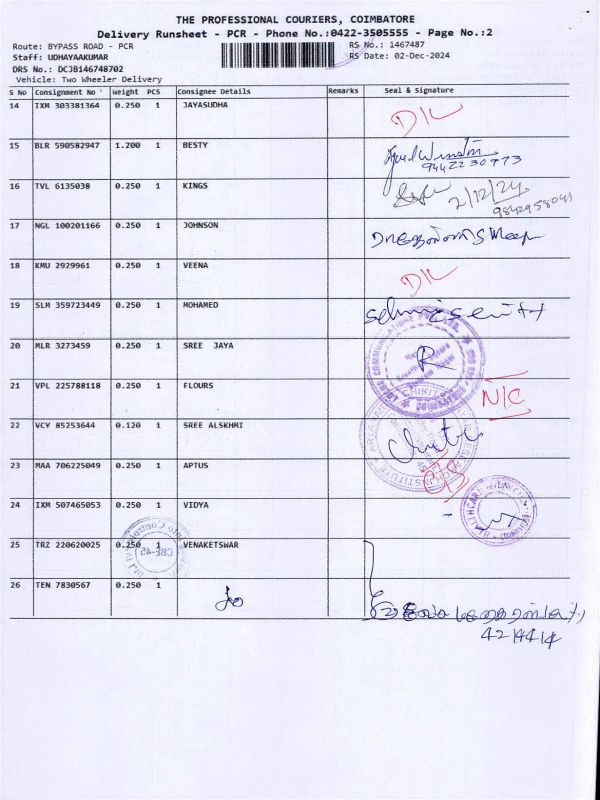 THE PROFESSIONAL COURIERS, COIMBATORE
Delivery Runsheet - PCR - Phone No.:0422-3505555 - Page No.:2
Route: BYPASS ROAD - PCR
RS No.: 1467487
Staff: UDHAYAAKUMAR
RS Date: 02-Dec-2024
DRS No.: DCJB146748702
Vehicle: Two Wheeler Delivery
S No Consignment No Weight PCS Consignee Details Remarks Seal & Signature
14 IXM 303381364 0.250 1 JAYASUDHA D/L
15 BLR 590582947 1.200 1 BESTY
9442230973
16 TVL 6135038 0.250 1 KINGS 2/12/24
9842958041
17 NGL 100201166 0.250 1 JOHNSON
18 KMU 2929961 0.250 1 VEENA D/L
19 SLM 359723449 0.250 1 MOHAMED
20 MLR 3273459 0.250 1 SREE JAYA R
21 VPL 225788118 0.250 1 FLOURS N/C
22 VCY 85253644 0.120 1 SREE ALSKHMI
23 MAA 706225049 0.250 1 APTUS
24 IXM 507465053 0.250 1 VIDYA
25 TRZ 220620025 0.250 1 VENAKETSWAR
CBE-45
26 TEN 7830567 0.250 1